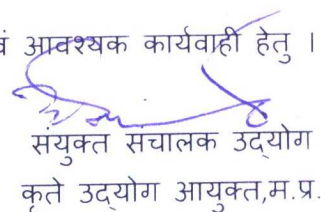 आवश्यक कार्यवाही हेतु ।
संयुक्त सचालक उद्योग
कृते उद्योग आयुक्त,म.प्र.